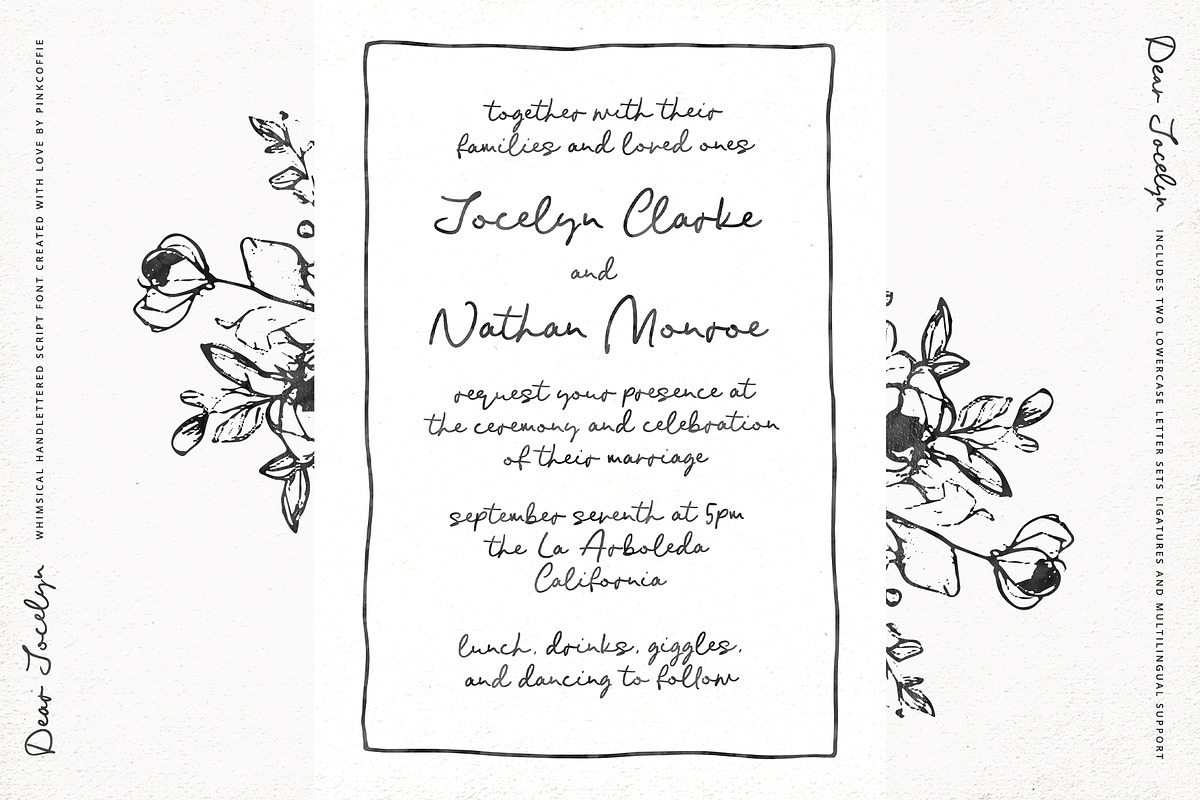 WHIMSICAL HANDLETTERED SCRIPT FONT CREATED WITH LOVE BY PINKCOFFIE
Dear Jocelyn
together with their
families and loved ones
Jocelyn Clarke
and
Nathan Monroe
request your presence at
the ceremony and celebration
of their marriage
september seventh at 5pm
the La Arboleda
California
lunch, drinks, giggles,
and dancing to follow
Dear Jocelyn
INCLUDES TWO LOWERCASE LETTER SETS LIGATURES AND MULTILINGUAL SUPPORT